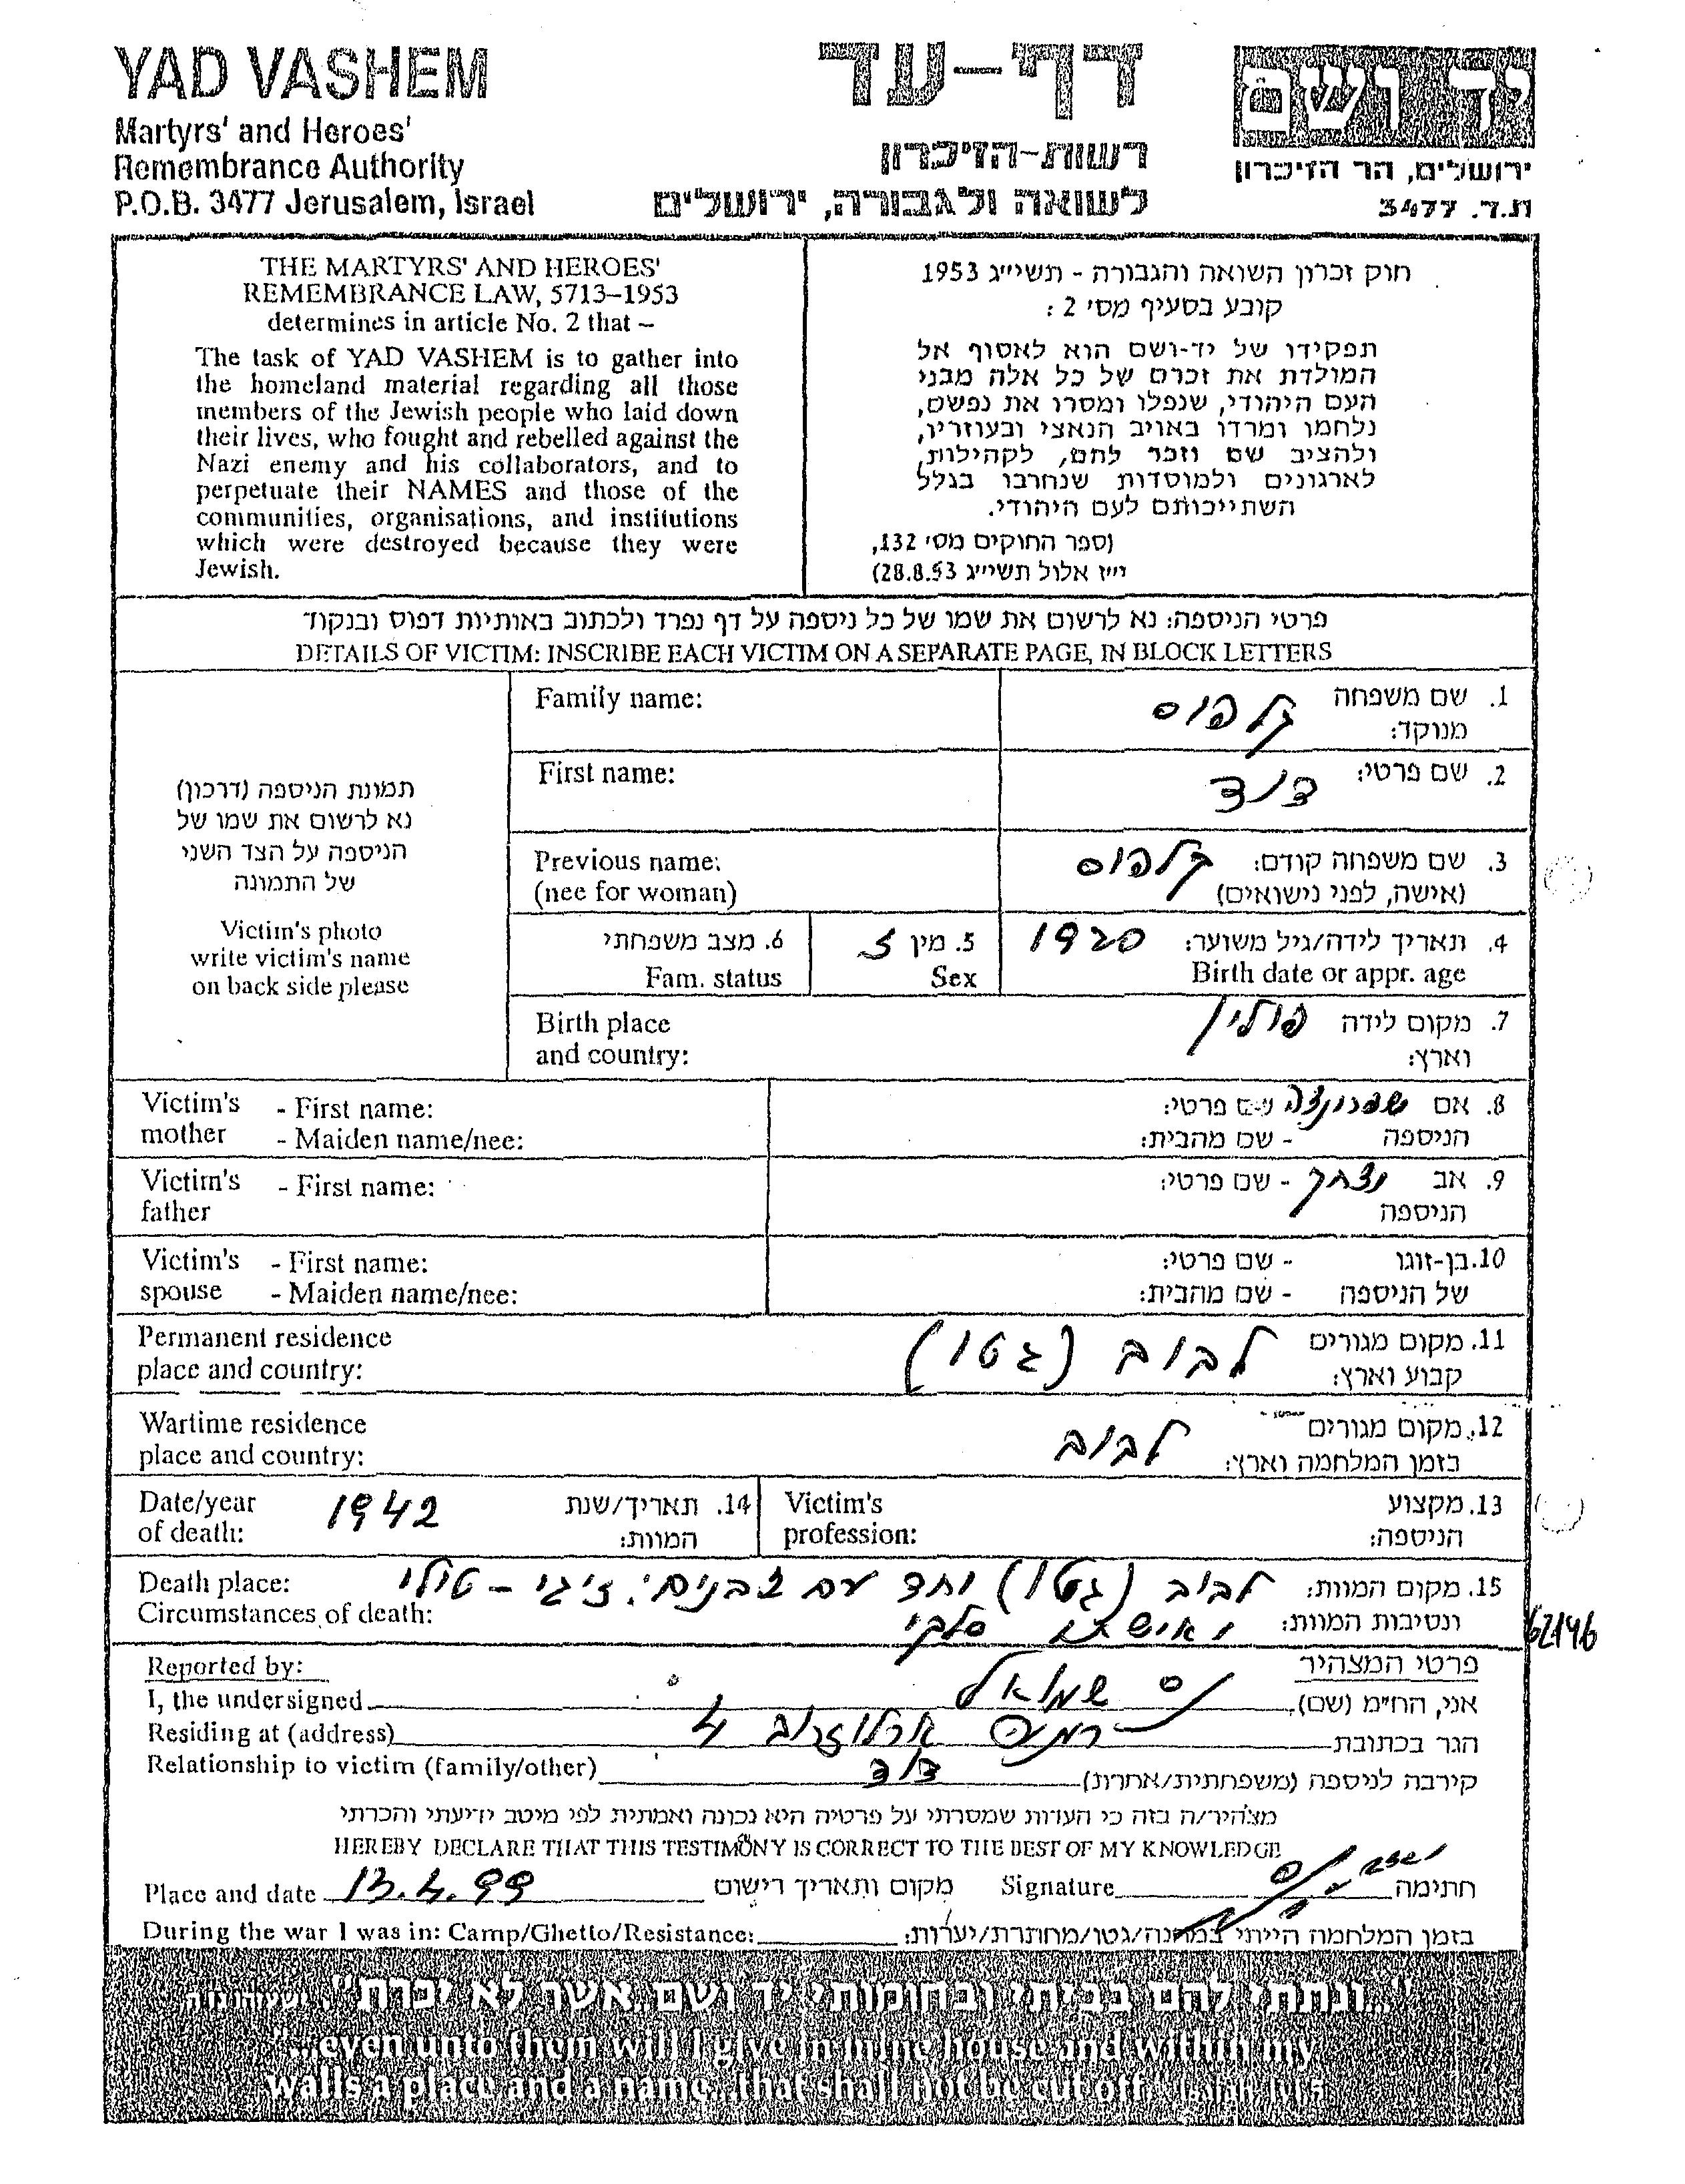 YAD VASHEM
Martyrs' and Heroes'
Remembrance Authority
P.O.B. 3477 Jerusalem, Israel
דף-עד
רשות-הזיכרון
לשואה ולגבורה, ירושלים
יד ושם
ירושלים, הר הזיכרון
ת.ד. 3477
THE MARTYRS' AND HEROES'
REMEMBRANCE LAW, 5713–1953
determines in article No. 2 that –
The task of YAD VASHEM is to gather into
the homeland material regarding all those
members of the Jewish people who laid down
their lives, who fought and rebelled against the
Nazi enemy and his collaborators, and to
perpetuate their NAMES and those of the
communities, organisations, and institutions
which were destroyed because they were
Jewish.
חוק זכרון השואה והגבורה - תשי"ג 1953
קובע בסעיף מס' 2 :
תפקידו של יד-ושם הוא לאסוף אל
המולדת את זכרם של כל אלה מבני
העם היהודי, שנפלו ומסרו את נפשם,
נלחמו ומרדו באויב הנאצי ובעוזריו,
ולהציב שם וזכר להם, לקהילות,
לארגונים ולמוסדות שנחרבו בגלל
השתייכותם לעם היהודי.
(ספר החוקים מס' 132,
י"ז אלול תשי"ג 28.8.53)
פרטי הניספה: נא לרשום את שמו של כל ניספה על דף נפרד ולכתוב באותיות דפוס ובנקוד
DETAILS OF VICTIM: INSCRIBE EACH VICTIM ON A SEPARATE PAGE, IN BLOCK LETTERS
תמונת הניספה (דרכון)
נא לרשום את שמו של
הניספה על הצד השני
של התמונה
Victim's photo
write victim's name
on back side please
Family name:
1. שם משפחה קלפוס
מנוקד:
First name:
2. שם פרטי: דוד
Previous name:
(nee for woman)
3. שם משפחה קודם: קלפוס
(אישה, לפני נישואים)
4. תאריך לידה/גיל משוער: 1920
Birth date or appr. age
5. מין ז
Sex
6. מצב משפחתי
Fam. status
Birth place
and country:
7. מקום לידה פולין
וארץ:
Victim's - First name:
mother - Maiden name/nee:
8. אם שפרונצה שם פרטי:
הניספה - שם מהבית:
Victim's - First name:
father
9. אב יצחק - שם פרטי:
הניספה
Victim's - First name:
spouse - Maiden name/nee:
10. בן-זוגו - שם פרטי:
של הניספה - שם מהבית:
Permanent residence
place and country:
11. מקום מגורים לבוב (גטו)
קבוע וארץ:
Wartime residence
place and country:
12. מקום מגורים
בזמן המלחמה וארץ: לבוב
Date/year
of death: 1942
14. תאריך/שנת
המוות:
Victim's
profession:
13. מקצוע
הניספה:
Death place:
Circumstances of death:
15. מקום המוות: לבוב (גטו) יחד עם 2 בנים: זיגי - טולי
ונסיבות המוות: ואישתו סלקי
62146
Reported by:
פרטי המצהיר
I, the undersigned
אני, הח"מ (שם) שמואל
Residing at (address)
הגר בכתובת ארלוזרוב 4
Relationship to victim (family/other)
קירבה לניספה (משפחתית/אחרת) דוד
מצהיר/ה בזה כי העדות שמסרתי על פרטיה היא נכונה ואמתית לפי מיטב ידיעתי והכרתי
HEREBY DECLARE THAT THIS TESTIMONY IS CORRECT TO THE BEST OF MY KNOWLEDGE
Place and date 13.4.99 מקום ותאריך רישום Signature חתימה
During the war I was in: Camp/Ghetto/Resistance: בזמן המלחמה הייתי במחנה/גטו/מחתרת/יערות:
"...ונתתי להם בביתי ובחומותי יד ושם...אשר לא יכרת" ישעיהו נו ה
"...even unto them will I give in mine house and within my
walls a place and a name...that shall not be cut off" Isaiah lvi 5